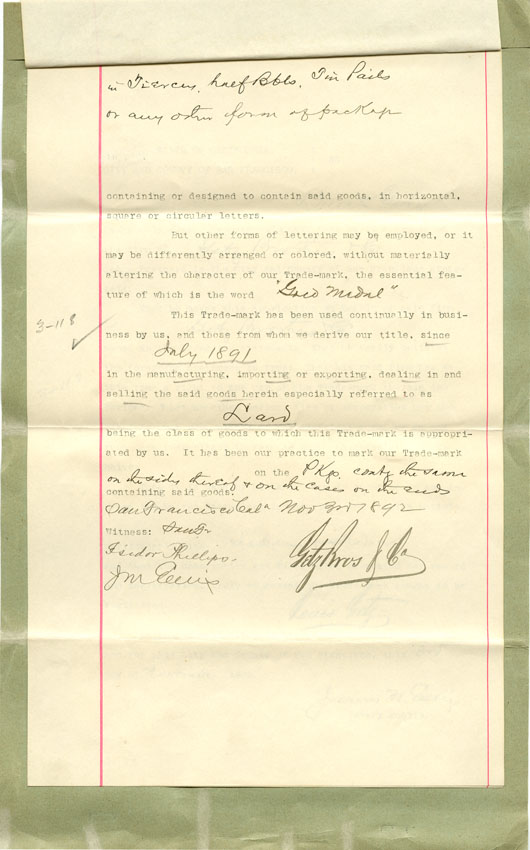 in Tierces, half Bbls, Tin Pails
or any other form of package
containing or designed to contain said goods, in horizontal,
square or circular letters.
But other forms of lettering may be employed, or it
may be differently arranged or colored, without materially
altering the character of our Trade-mark, the essential fea-
ture of which is the word "Gold Medal"
This Trade-mark has been used continually in busi-
3-118
ness by us, and those from whom we derive our title, since
July 1891
in the manufacturing, importing or exporting, dealing in and
selling the said goods herein especially referred to as
Lard
being the class of goods to which this Trade-mark is appropri-
ated by us. It has been our practice to mark our Trade-mark
on the Pkgs. contg the same
on the sides thereof & on the cases on the ends
containing said goods.
San Francisco Cala Nov 3rd 1892
Witness:
Isidor Phillips.
Getz Bros & Co
J M Ellis